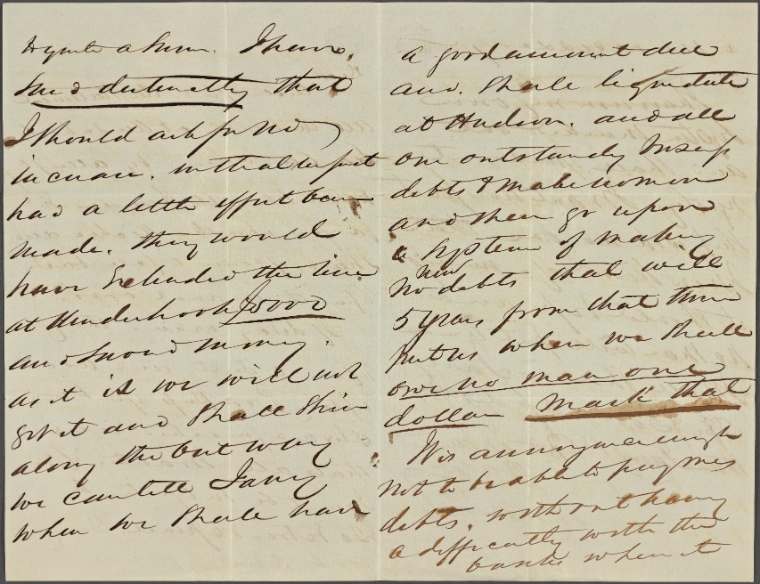 a sum. I have,
said distinctly that
I should ask for no
increase. with all respect
had a little effort been
made. they would
have extended the line
at Kinderhook
and saved money.
as it is we will not
get it and shall skin
along the best way
we can till Jany
when we shall have
a good amount due
and shall liquidate
at Hudson. and all
our outstanding
debts & make no more
and then go upon
a system of making
new
no debts that will
5 years from that time
put us when we shall
owe no man one
dollar mark that
It is annoying enough
not to be able to pay ones
debts. without having
a difficulty with the
banks when it